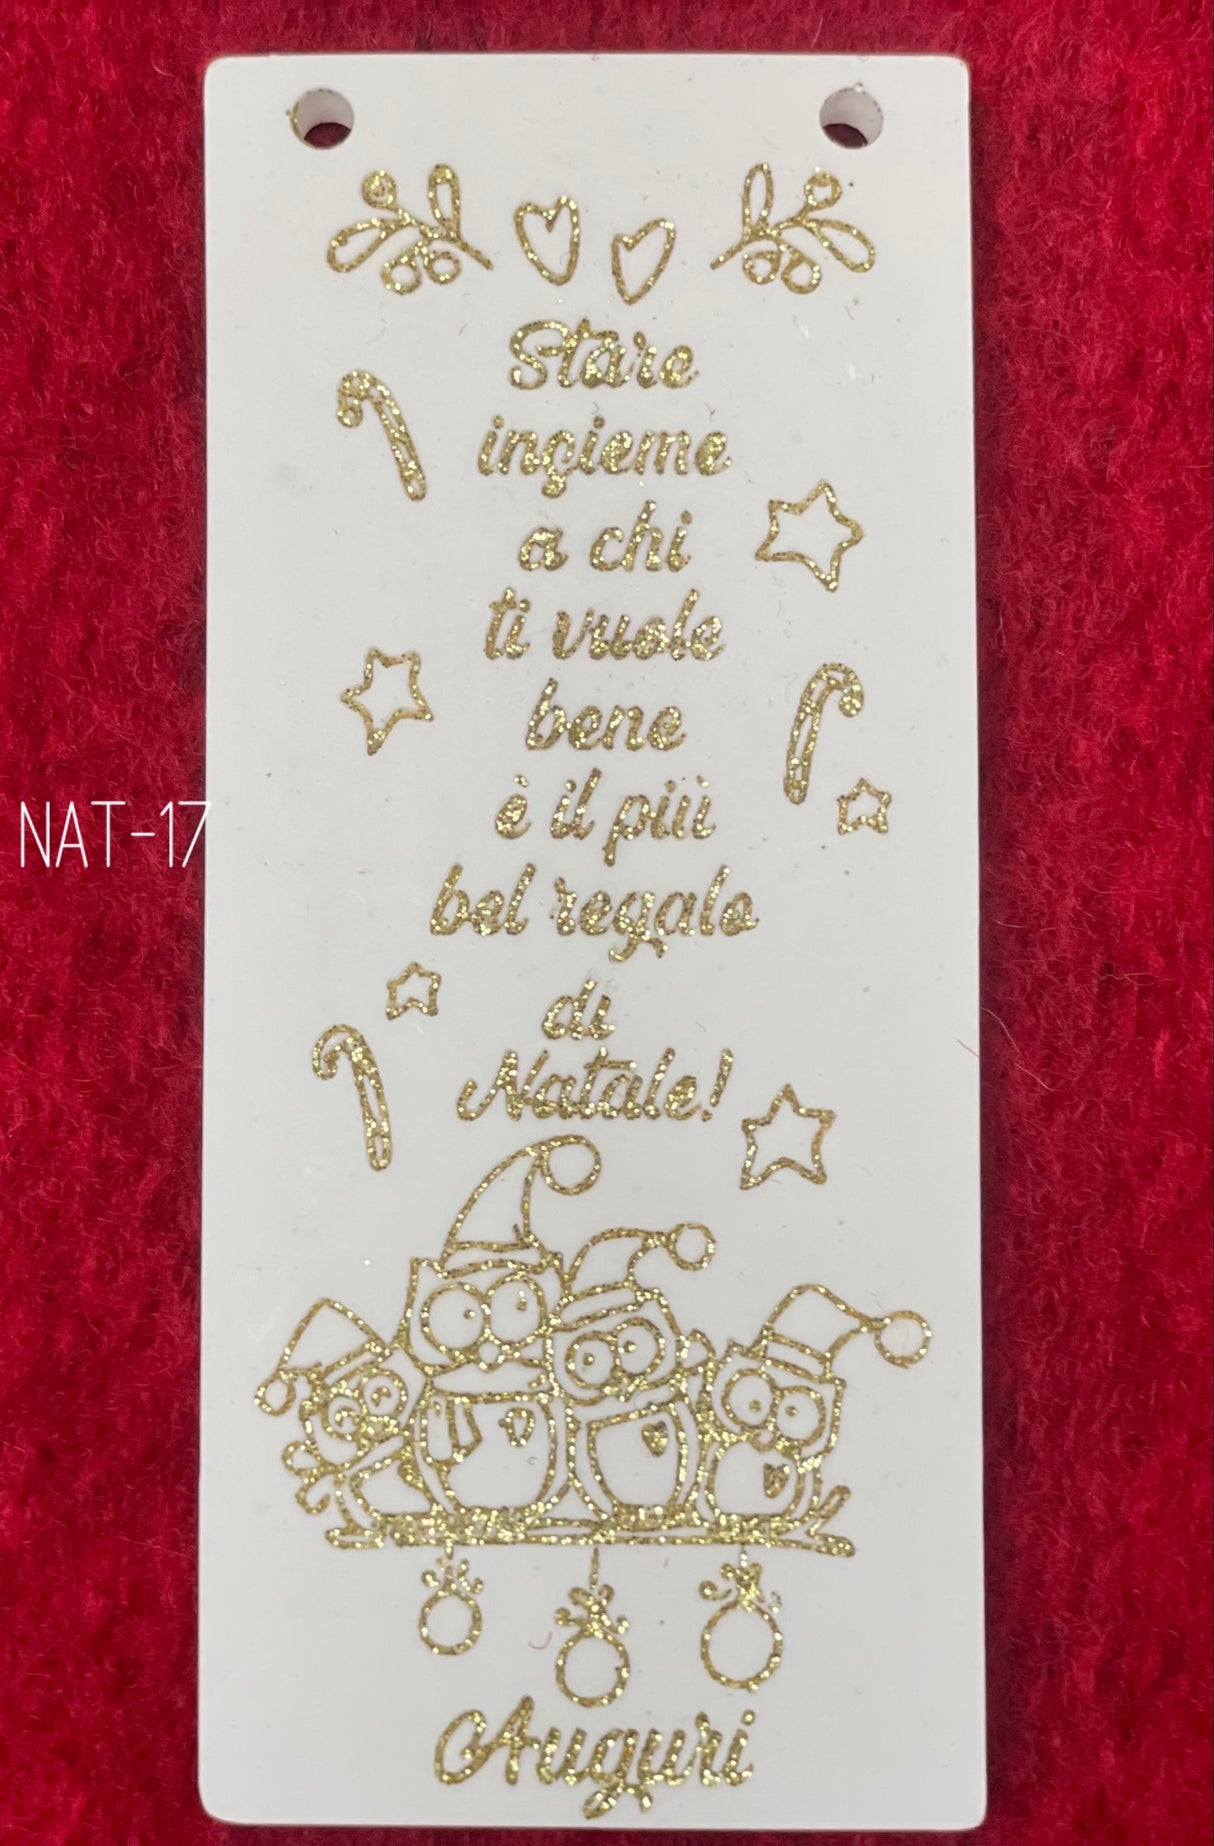 Stare
ingieme
a chi
ti vuole
bene
è il più
bel regalo
di
Natale!
NAT-17
Auguri